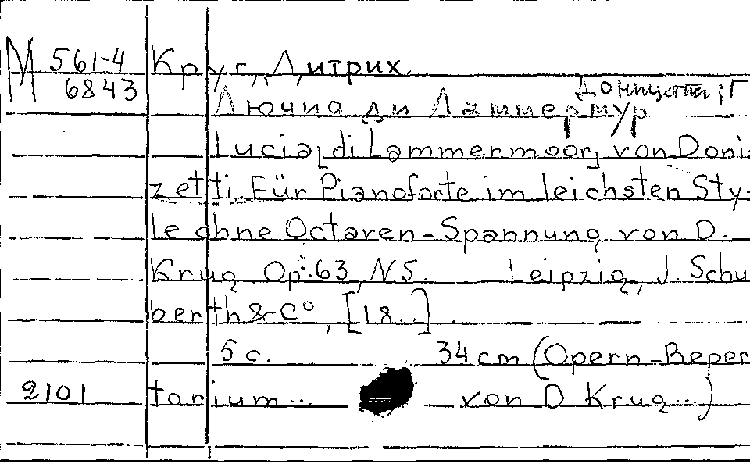 М 561-4 Круг, Дитрих.
6843 Доницетти, Г
Лючиа ди Ламмермур
Lucia di Lammermoor, von Doni
zetti. Für Pianoforte im leichsten Sty-
le ohne Octaven-Spannung von D.
Krug. Op. 63, N 5. Leipzig, J. Schu
berth & C°, [18..].
5 c. 34 cm (Opern-Reper
2101 torium... von D Krug...)